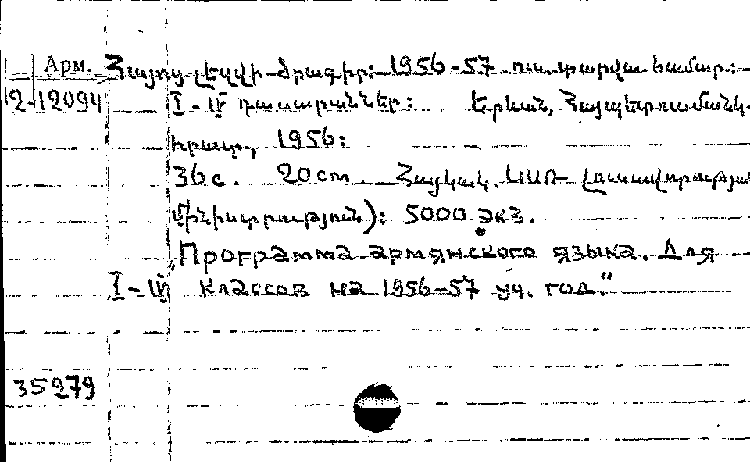 Арм. Հայոց լեզվի ծրագիր: 1956-57 ուս. տարվա համար.:
2-12094 I-IV դասարաններ: Երևան, Հայպետուսմանկ-
հրատ., 1956:
36 с. 20 cm. Հայկակ. ՍՍՌ Լուսավորության
մինիստրություն): 5000 экз.
Программа армянского языка. Для
I-IV классов на 1956-57 уч. год."
35279